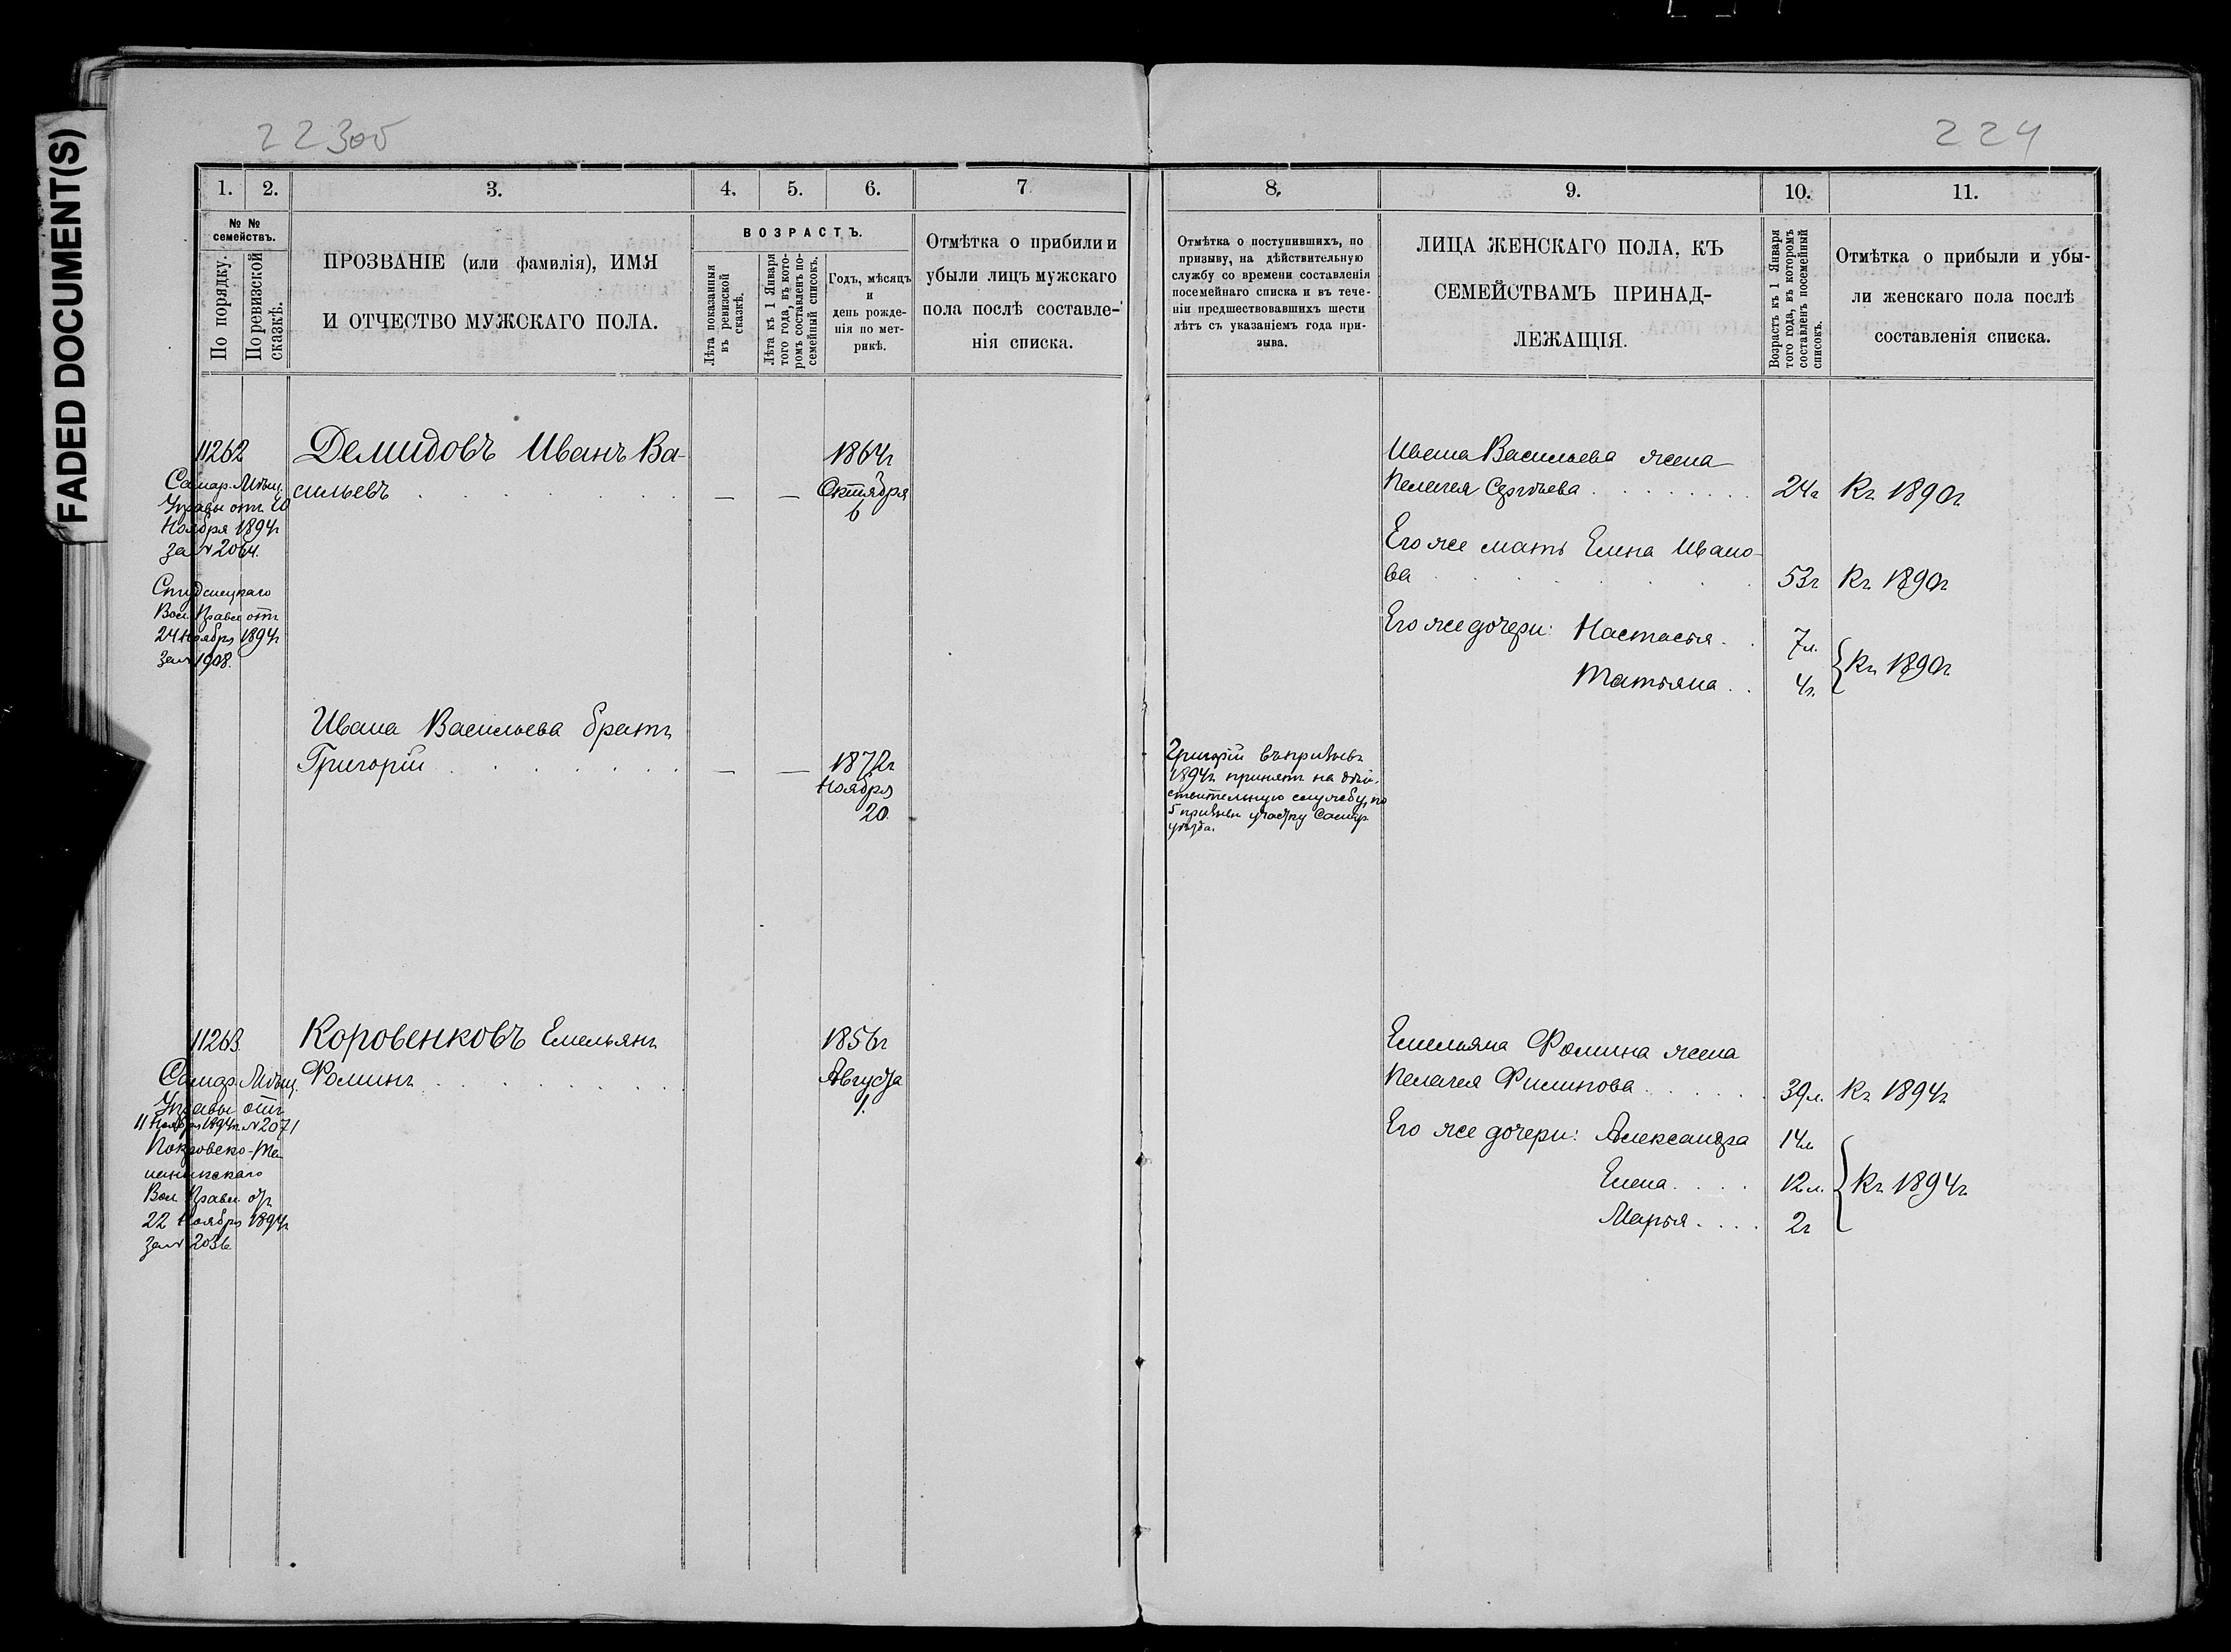 FADED DOCUMENT(S)
223об
1. 2. 3. 4. 5. 6. 7
№ №
семействъ.
По порядку.
По ревизской
сказкѣ.
ПРОЗВАНІЕ (или фамилія), ИМЯ
И ОТЧЕСТВО МУЖСКАГО ПОЛА.
ВОЗРАСТЪ.
Лѣта показанныя
въ ревизской
сказкѣ.
Лѣта къ 1 Января
того года, въ кото-
ромъ составленъ по-
семейный списокъ.
Годъ, мѣсяцъ
и
день рожде-
нія по мет-
рикѣ.
Отмѣтка о прибыли и
убыли лицъ мужскаго
пола послѣ составле-
нія списка.
11262
Самар. Мѣщ.
Управы отъ 10
Ноября 1894г
за № 2064.
Вол. Правл отъ
24 Ноября 1894г
за № 1908.
Демидовъ Иванъ Ва-
сильевъ
— —
1864г
Октября
6
Ивана Васильева братъ
Григорій
— —
1872г
Ноября
20.
11263
Самар. Мѣщ.
Управы отъ
11 Ноября 1894г № 2071
Покровско-
Вол. Правл. отъ
22 Ноября 1894г
за № 2036
Коровенковъ Емельянъ
Фоминъ
1856г
Августа
1.
224
8. 9. 10. 11.
Отмѣтка о поступившихъ, по
призыву, на дѣйствительную
службу со времени составленія
посемейнаго списка и въ тече-
ніи предшествовавшихъ шести
лѣтъ съ указаніемъ года при-
зыва.
ЛИЦА ЖЕНСКАГО ПОЛА, КЪ
СЕМЕЙСТВАМЪ ПРИНАД-
ЛЕЖАЩІЯ.
Возрастъ къ 1 Января
того года, въ которомъ
составленъ посемейный
списокъ.
Отмѣтка о прибыли и убы-
ли женскаго пола послѣ
составленія списка.
Ивана Васильева жена
Пелагея Сергѣева 24г Къ 1890г
Его же мать Елена Ивано-
ва 53г Къ 1890г
Его же дочери: Настасья 7л.
Татьяна 4г. Къ 1890г
Григорій въ призывъ
1894г. принятъ на дѣй-
ствительную службу, по
5 призывн участку Самар
уѣзда.
Емельяна Фомина жена
Пелагея Филипова 39л. Къ 1894г
Его же дочери: Александра 14л
Елена 12л. Къ 1894г
Марья 2г